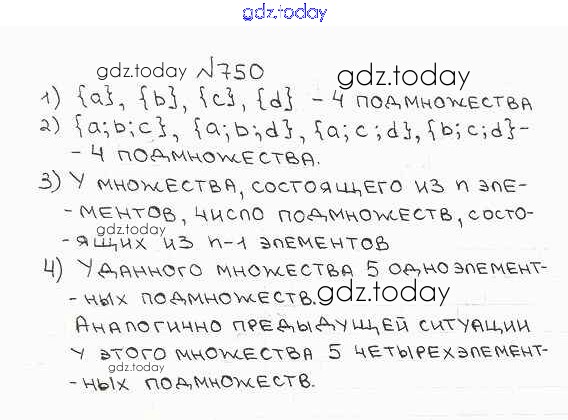 gdz.today
gdz.today №750 gdz.today
1) {a}, {b}, {c}, {d} - 4 подмножества
2) {a;b;c}, {a;b;d}, {a;c;d}, {b;c;d} -
- 4 подмножества.
3) У множества, состоящего из n эле-
- ментов, число подмножеств, состо-
gdz.today
- ящих из n-1 элементов
4) У данного множества 5 одноэлемент-
- ных подмножеств.
gdz.today
Аналогично предыдущей ситуации
у этого множества 5 четырехэлемент-
gdz.today
- ных подмножеств.